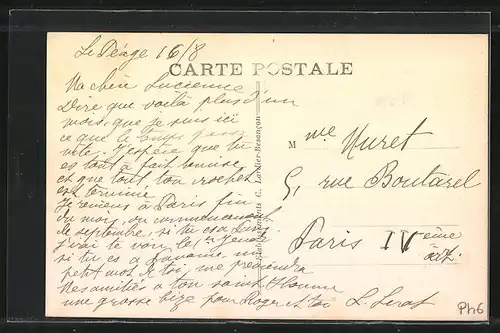 Le Péage 16/8
CARTE POSTALE
Ma chère Lucienne
Dire que voilà plus d'un
mois que je suis ici
ce que le temps passe
vite. J'espère que tu
es tout à fait remise
et que tout ton crochet
est terminé
Je reviens à Paris fin
du mois, ou commencement
de septembre, si tu es à Paris
j'irai te voir le 1er
si tu es à un
petit mot de toi, me
Mes amitiés à ton
une grosse bize pour Roger et toi
Etablissements C. Lardier-Besançon
M me Muret
5, rue Boutarel
Paris IV ème
arr.
Ph6